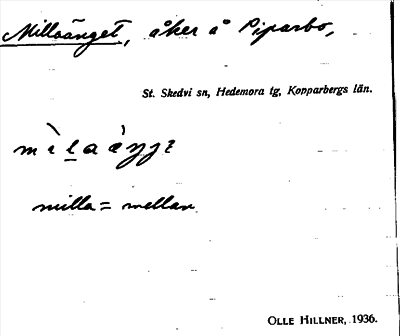 Millaänget, åker å Piparbo,
St. Skedvi sn, Hedemora tg, Kopparbergs län.
milla = mellan
OLLE HILLNER, 1936.